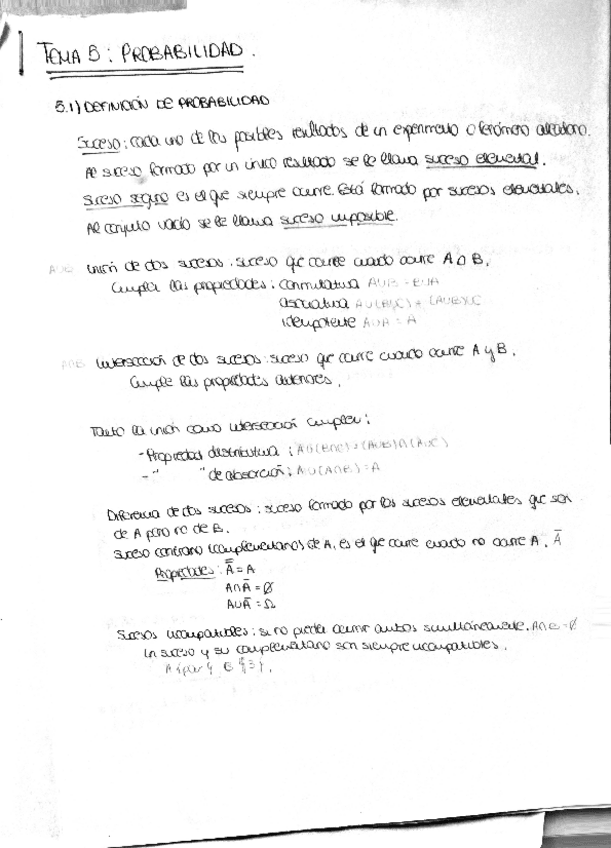 TEMA 5: PROBABILIDAD.
5.1) DEFINICIÓN DE PROBABILIDAD
Suceso: cada uno de los posibles resultados de un experimento o fenómeno aleatorio.
Al suceso formado por un único resultado se le llama suceso elemental.
Suceso seguro es el que siempre ocurre. Está formado por sucesos elementales.
Al conjunto vacío se le llama suceso imposible.
AUB Unión de dos sucesos: suceso que ocurre cuando ocurre A o B.
Cumplen las propiedades: conmutativa AUB = BUA
asociativa AU(BUC) = (AUB)UC
idempotente AUA = A
A∩B Intersección de dos sucesos: suceso que ocurre cuando ocurre A y B.
Cumple las propiedades anteriores.
Tanto la unión como intersección cumplen:
- Propiedad distributiva: AU(B∩C) = (AUB)∩(AUC)
- " " de absorción: AU(A∩B) = A
Diferencia de dos sucesos: suceso formado por los sucesos elementales que son
de A pero no de B.
Suceso contrario (complementario) de A, es el que ocurre cuando no ocurre A. Ā
Propiedades: A̿ = A
A∩Ā = Ø
AUĀ = Ω
Sucesos incompatibles: si no pueden ocurrir ambos simultáneamente. A∩B = Ø
Un suceso y su complementario son siempre incompatibles.
A {par} B {3}.